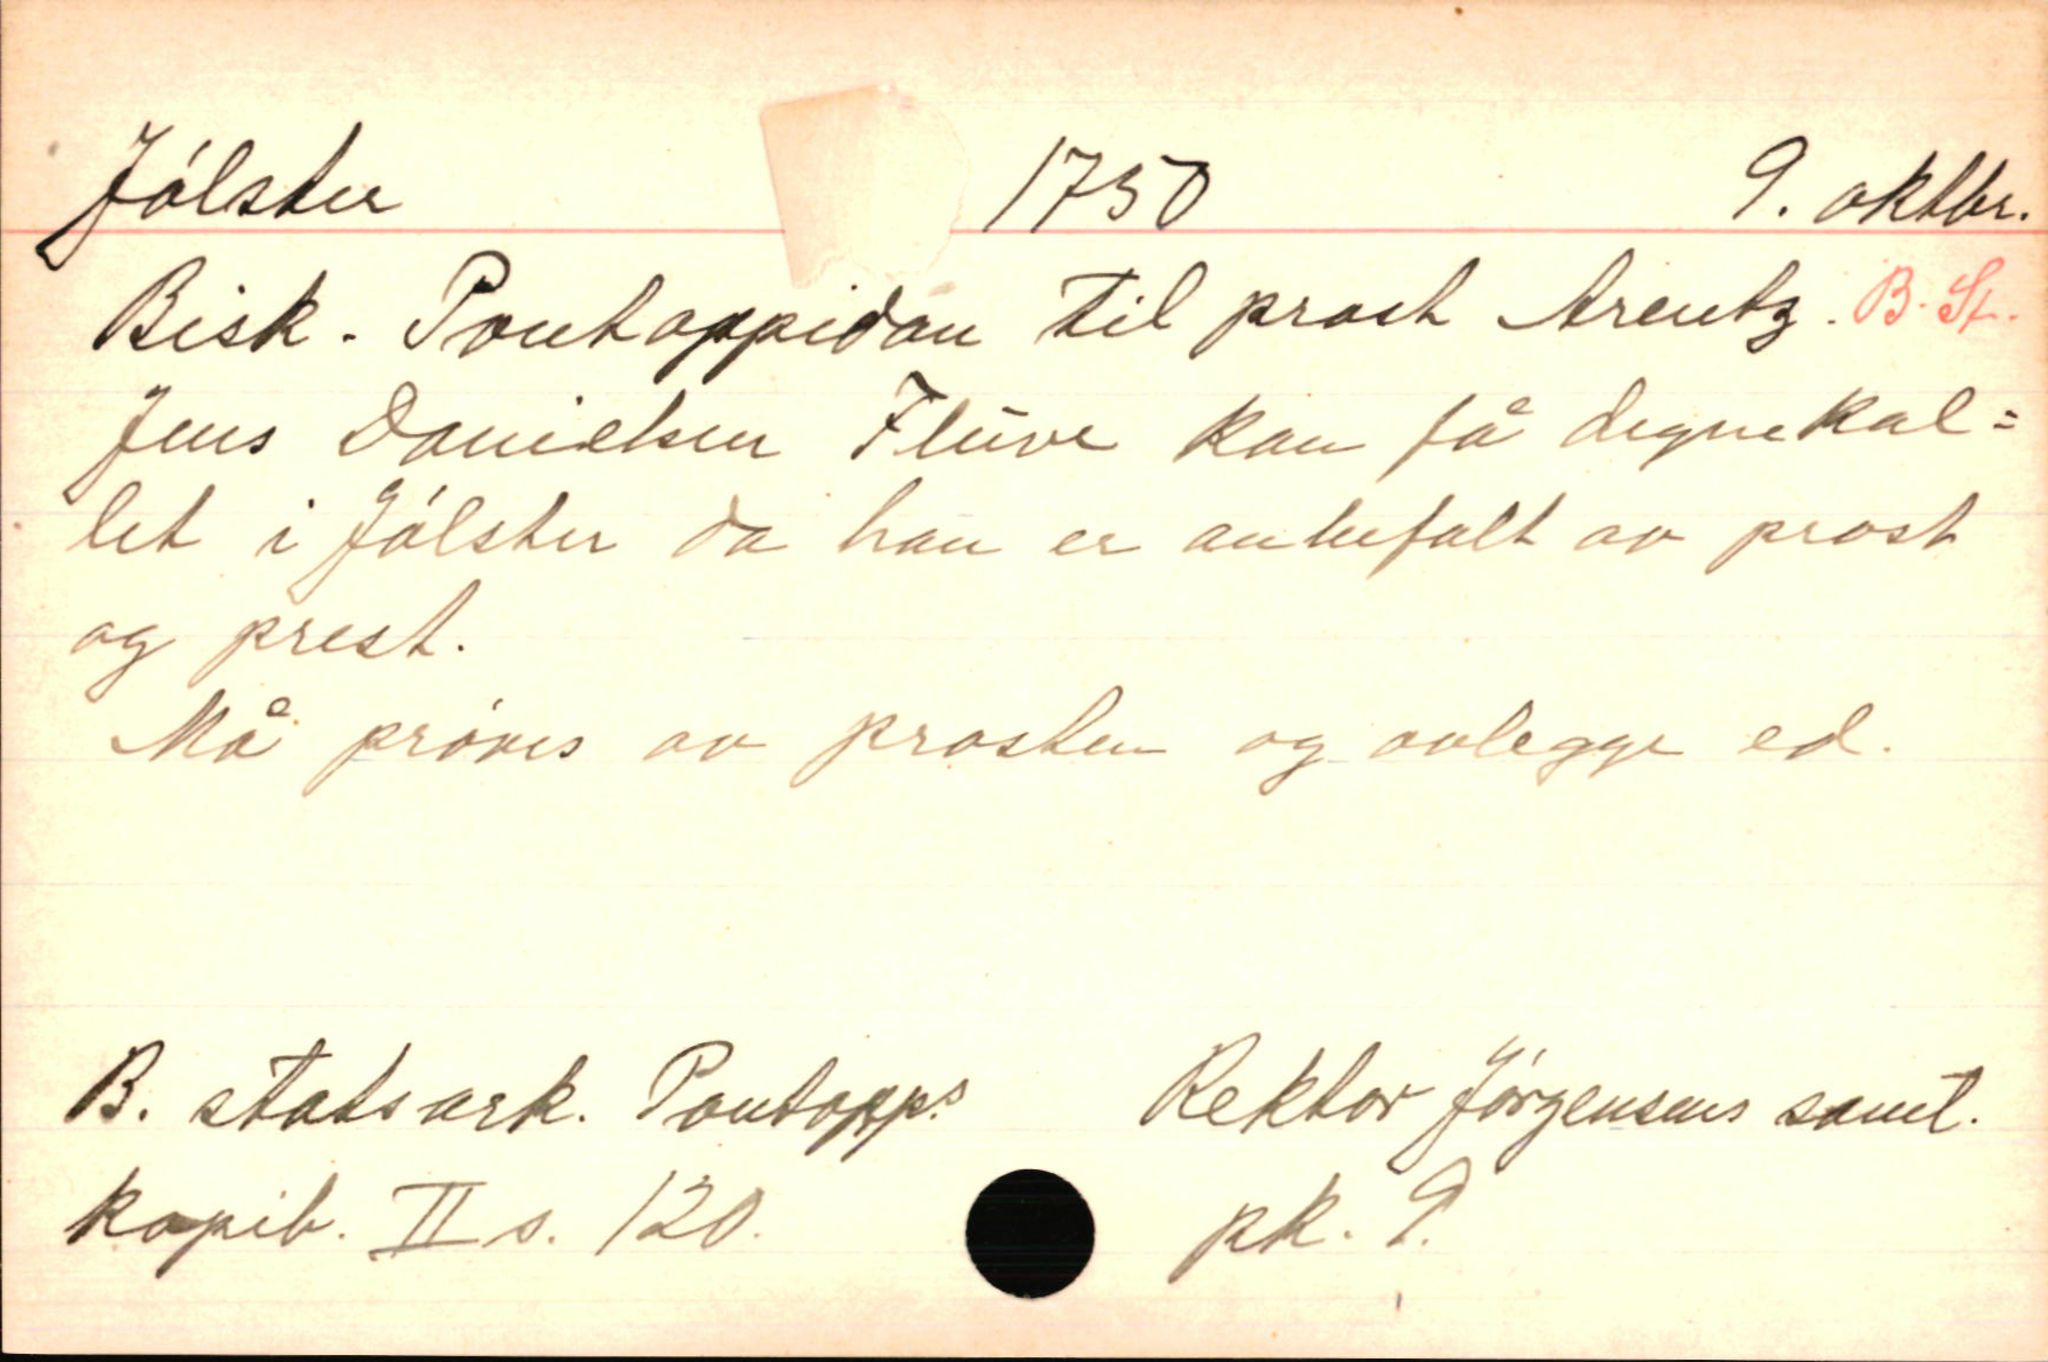 Jólster 1750 9. oktbr.
Bisk. Pontoppidan til prost Arentz. B. St.
Jens Danielsen Flūve kan få degnekal=
let i Jólster da han er anbefalt av prost
og prest.
Må próves av prosten og avlegge ed.
B. statsark. Pontopp.s Rektor Jórgensens saml.
kopib. II s. 120. pk. 9.